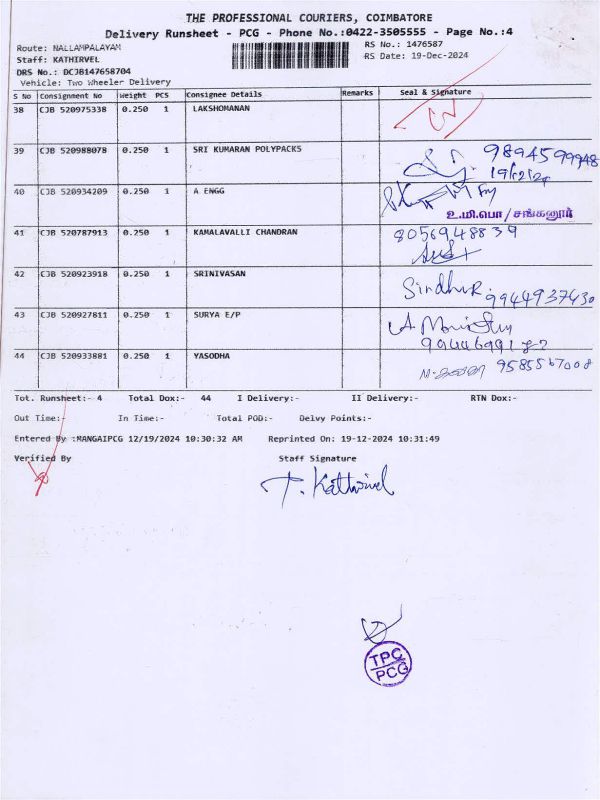 THE PROFESSIONAL COURIERS, COIMBATORE
Delivery Runsheet - PCG - Phone No.:0422-3505555 - Page No.:4
Route: NALLAMPALAYAM RS No.: 1476587
Staff: KATHIRVEL RS Date: 19-Dec-2024
DRS No.: DCJB147658704
Vehicle: Two Wheeler Delivery
S No Consignment No Weight PCS Consignee Details Remarks Seal & Signature
38 CJB 520975338 0.250 1 LAKSHOMANAN
39 CJB 520988078 0.250 1 SRI KUMARAN POLYPACKS 9894599948
19/12/24
40 CJB 520934209 0.250 1 A ENGG
உ.மி.பொ/சங்கனூர்
41 CJB 520787913 0.250 1 KAMALAVALLI CHANDRAN 8056948839
42 CJB 520923918 0.250 1 SRINIVASAN Sindhu R 9944937430
43 CJB 520927811 0.250 1 SURYA E/P
44 CJB 520933881 0.250 1 YASODHA 9585567008
Tot. Runsheet:- 4 Total Dox:- 44 I Delivery:- II Delivery:- RTN Dox:-
Out Time:- In Time:- Total POD:- Delvy Points:-
Entered By :MANGAIPCG 12/19/2024 10:30:32 AM Reprinted On: 19-12-2024 10:31:49
Verified By Staff Signature
T. Kathirvel
TPC
PCG